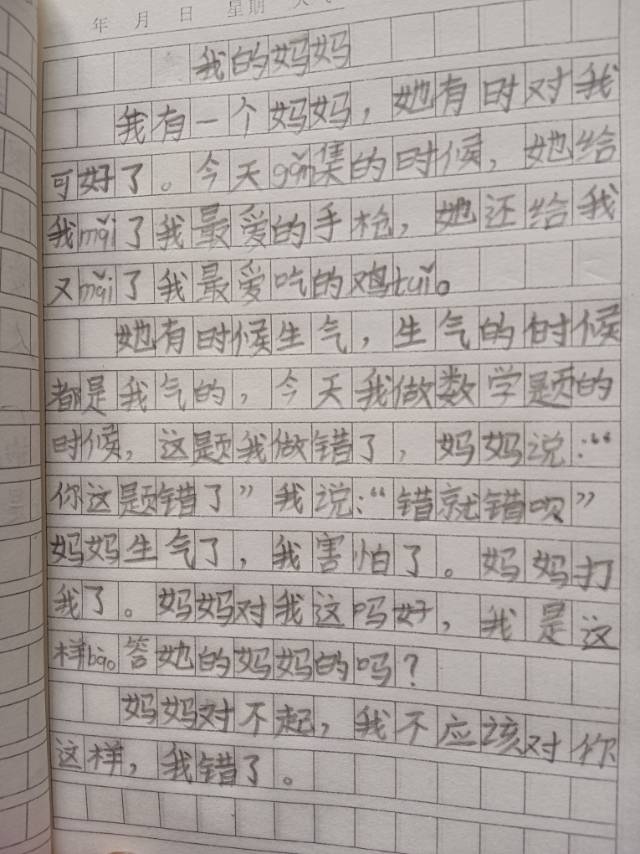 年 月 日 星期
我的妈妈
我有一个妈妈，她有时对我
可好了。今天gǎn集的时候，她给
我mǎi了我最爱的手枪，她还给我
又mǎi了我最爱吃的鸡tuǐ。
她有时候生气，生气的时候
都是我气的，今天我做数学题的
时候，这题我做错了，妈妈说：“
你这题错了”我说：“错就错呗”
妈妈生气了，我害怕了。妈妈打
我了。妈妈对我这吗好，我是这
样bào答她的妈妈的吗？
妈妈对不起，我不应该对你
这样，我错了。